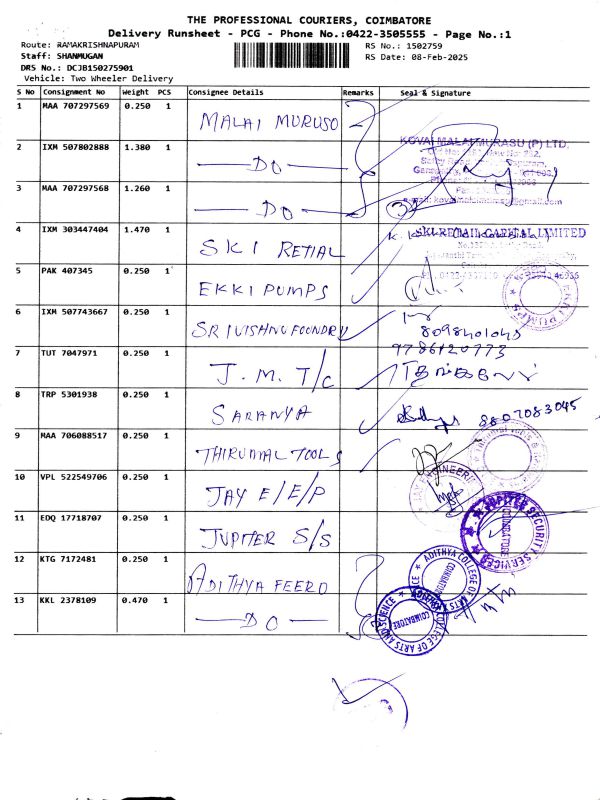 THE PROFESSIONAL COURIERS, COIMBATORE
Delivery Runsheet - PCG - Phone No.:0422-3505555 - Page No.:1
Route: RAMAKRISHNAPURAM
RS No.: 1502759
Staff: SHANMUGAN
RS Date: 08-Feb-2025
DRS No.: DCJB150275901
Vehicle: Two Wheeler Delivery
S No Consignment No Weight PCS Consignee Details Remarks Seal & Signature
1 MAA 707297569 0.250 1 MALAI MURUSO
KOVAI MALAI MURASU (P) LTD.
2 IXM 507802888 1.380 1 —DO—
3 MAA 707297568 1.260 1 —DO—
4 IXM 303447404 1.470 1 SKI RETIAL
SKI RETAIL CAPITAL LIMITED
5 PAK 407345 0.250 1 EKKI PUMPS
EKKI PUMPS
6 IXM 507743667 0.250 1 SRIVISHNU FOUNDRY
8098401045
7 TUT 7047971 0.250 1 J.M.T/C
9786120773
8 TRP 5301938 0.250 1 SARANYA
8807083045
9 MAA 706088517 0.250 1 THIRUMAL TOOLS
10 VPL 522549706 0.250 1 JAY E/E/P
11 EDQ 17718707 0.250 1 JUPITER S/S
JUPITER SECURITY SERVICES
COIMBATORE
12 KTG 7172481 0.250 1 ADITHYA FEERO
ADITHYA COLLEGE OF ARTS AND SCIENCE
COIMBATORE
13 KKL 2378109 0.470 1 —DO—
COLLEGE OF ARTS AND SCIENCE
COIMBATORE